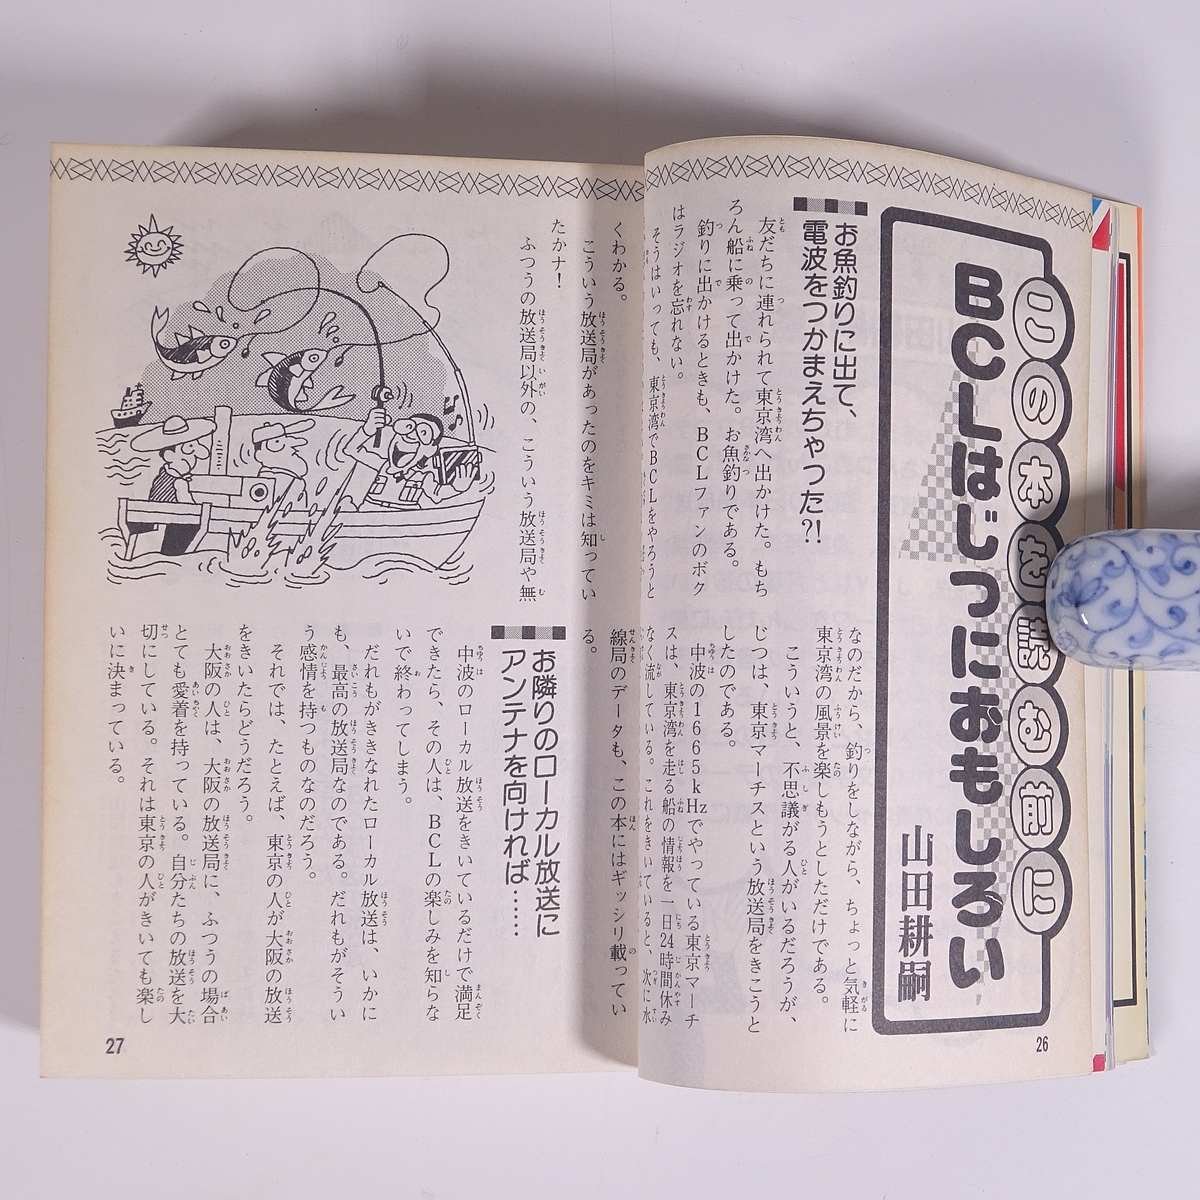 この本を読む前に
BCLはじつにおもしろい
山田耕嗣
お魚釣りに出て、
電波をつかまえちゃった?!
友だちに連れられて東京湾へ出かけた。もち
ろん船に乗って出かけた。お魚釣りである。
釣りに出かけるときも、BCLファンのボク
はラジオを忘れない。
そうはいっても、東京湾でBCLをやろうと
なのだから、釣りをしながら、ちょっと気軽に
東京湾の風景を楽しもうとしただけである。
こういうと、不思議がる人がいるだろうが、
じつは、東京マーチスという放送局をきこうと
したのである。
中波の1665kHzでやっている東京マーチ
スは、東京湾を走る船の情報を一日24時間休み
なく流している。これをきいていると、次に水
26
くわかる。
こういう放送局があったのをキミは知ってい
たかナ!
ふつうの放送局以外の、こういう放送局や無
線局のデータも、この本にはギッシリ載ってい
る。
お隣りのローカル放送に
アンテナを向ければ……
中波のローカル放送をきいているだけで満足
できたら、その人は、BCLの楽しみを知らな
いで終わってしまう。
だれもがききなれたローカル放送は、いかに
も、最高の放送局なのである。だれもがそうい
う感情を持つものなのだろう。
それでは、たとえば、東京の人が大阪の放送
をきいたらどうだろう。
大阪の人は、大阪の放送局に、ふつうの場合
とても愛着を持っている。自分たちの放送を大
切にしている。それは東京の人がきいても楽し
いに決まっている。
27